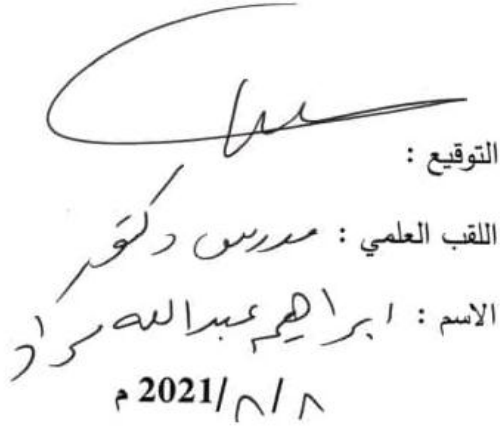 التوقيع :
اللقب العلمي : مدرس دكتور
الاسم : ابراهيم عبدالله مراد
٨ / ٨ / 2021 م